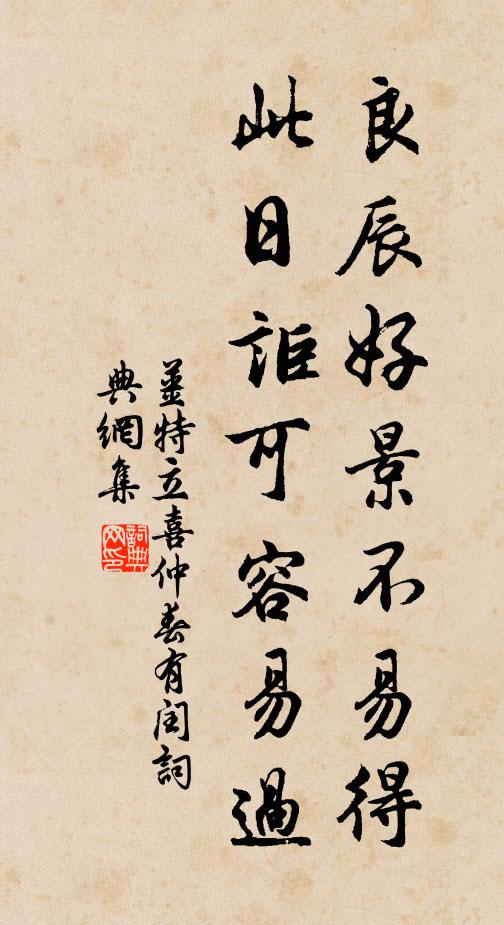 良辰好景不易得
此日詎可容易過
姜特立喜仲春有閏詞
典網集
詞典網印